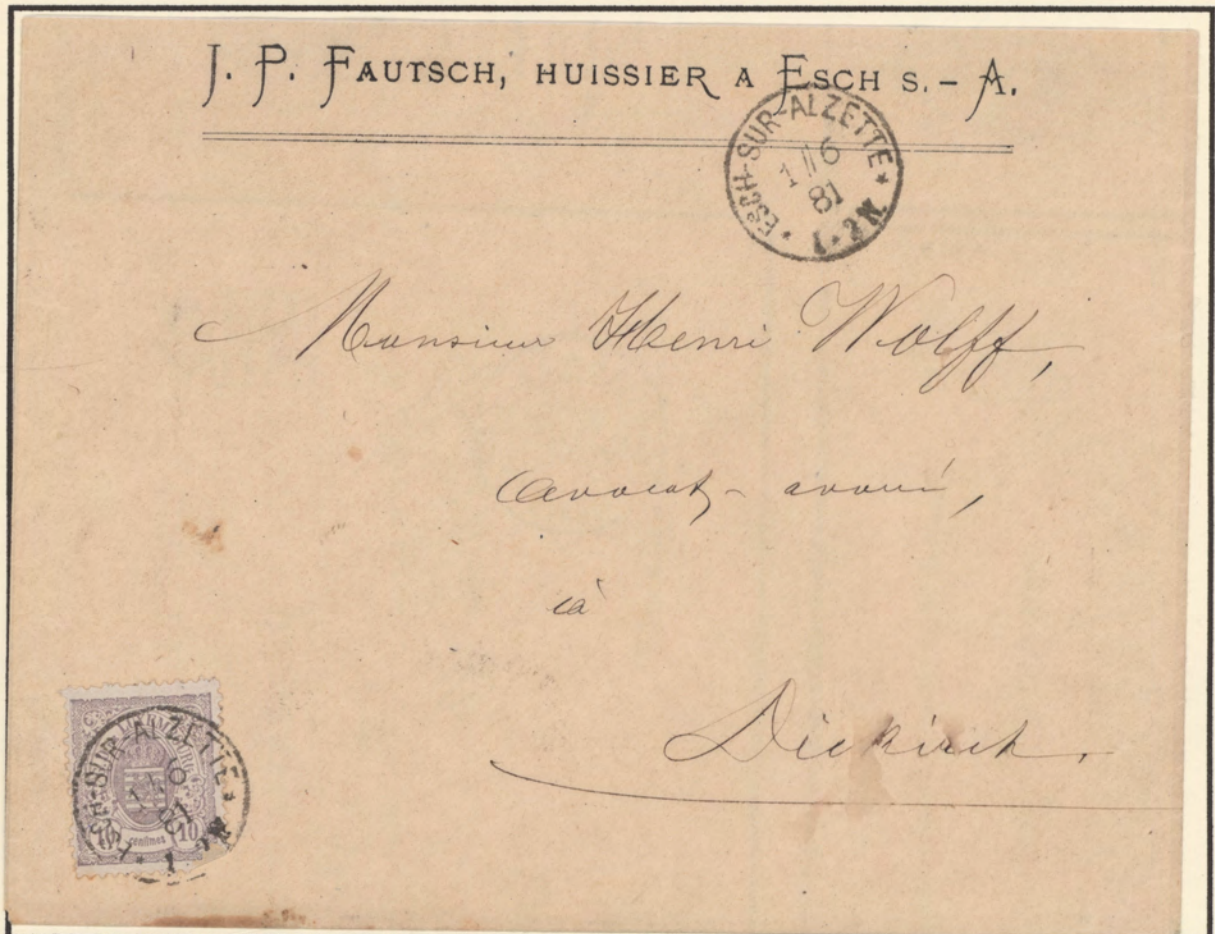 J. P. FAUTSCH, HUISSIER A ESCH S.-A.
ESCH-SUR-ALZETTE
1 6
81
1-2N.
Monsieur Henri Wolff,
avocat-avoué,
à
Diekirch.
LUXEMBOURG
ESCH-SUR-ALZETTE
6
81
10 centimes 10